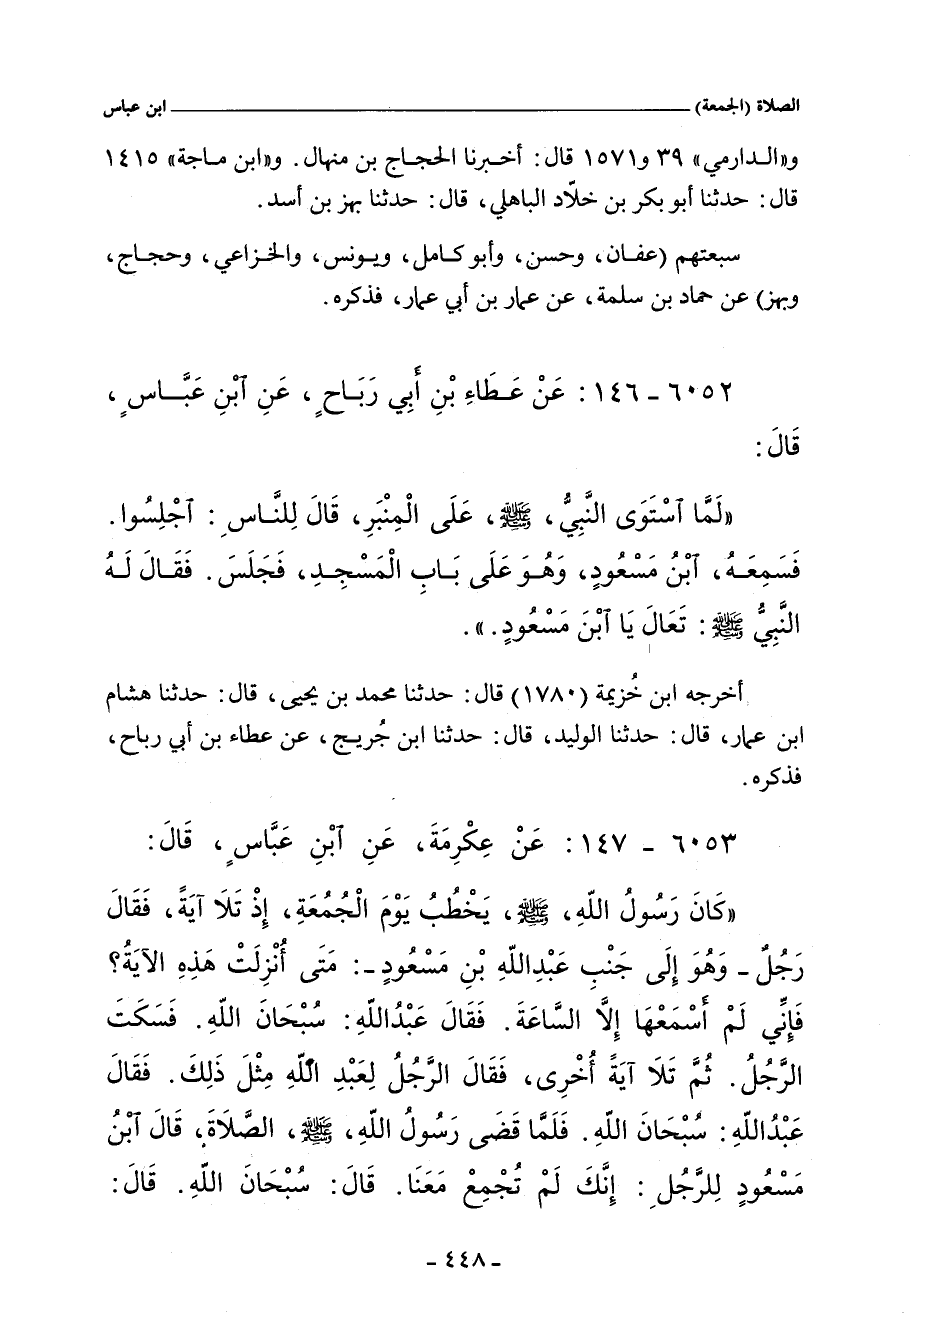 الصلاة (الجمعة) ــــــــــــــــــــــــــــــــ ابن عباس
و«الـدارمي» ٣٩ و١٥٧١ قال: أخـبرنا الحجـاج بن منهال. و«ابن مـاجة» ١٤١٥
قال: حدثنا أبو بكر بن خلّاد الباهلي، قال: حدثنا بهز بن أسد.
سبعتهم (عفـان، وحسن، وأبو كـامل، ويـونس، والخـزاعي، وحجـاج،
وبهز) عن حماد بن سلمة، عن عمار بن أبي عمار، فذكره.
٦٠٥٢ ـ ١٤٦: عَنْ عَـطَاءِ بْنِ أَبِي رَبَـاحٍ، عَنِ ٱبْنِ عَبَّـاسٍ،
قَالَ:
«لَمَّا ٱسْتَوَى النَّبِيُّ، ﷺ، عَلَى الْمِنْبَرِ، قَالَ لِلنَّـاسِ: ٱجْلِسُوا.
فَسَمِعَـهُ، ٱبْنُ مَسْعُودٍ، وَهُـوَ عَلَى بَـابِ الْمَسْجِـدِ، فَجَلَسَ. فَقَـالَ لَـهُ
النَّبِيُّ ﷺ: تَعَالَ يَا ٱبْنَ مَسْعُودٍ.».
أخرجه ابن خُزيمة (١٧٨٠) قال: حدثنا محمد بن يحيى، قال: حدثنا هشام
ابن عمار، قال: حدثنا الوليد، قال: حدثنا ابن جُريـج، عن عطاء بن أبي رباح،
فذكره.
٦٠٥٣ ـ ١٤٧: عَنْ عِكْرِمَةَ، عَنِ ٱبْنِ عَبَّاسٍ، قَالَ:
«كَانَ رَسُولُ اللّهِ، ﷺ، يَخْطُبُ يَوْمَ الْجُمُعَةِ، إِذْ تَلَا آيَةً، فَقَالَ
رَجُلٌ ـ وَهُوَ إِلَى جَنْبِ عَبْدِاللّهِ بْنِ مَسْعُودٍ ـ: مَتَى أُنْزِلَتْ هَذِهِ الآيَةُ؟
فَإِنِّي لَمْ أَسْمَعْهَا إِلَّا السَّاعَةَ. فَقَالَ عَبْدُاللّهِ: سُبْحَانَ اللّهِ. فَسَكَتَ
الرَّجُلُ. ثُمَّ تَلَا آيَةً أُخْرِى، فَقَالَ الرَّجُلُ لِعَبْدِ اللّهِ مِثْلَ ذَلِكَ. فَقَالَ
عَبْدُاللّهِ: سُبْحَانَ اللّهِ. فَلَمَّا قَضَى رَسُولُ اللهِ، ﷺ، الصَّلَاةَ، قَالَ ٱبْنُ
مَسْعُودٍ لِلرَّجُلِ: إِنَّكَ لَمْ تُجْمِعْ مَعَنَا. قَالَ: سُبْحَانَ اللّهِ. قَالَ:
ـ ٤٤٨ ـ